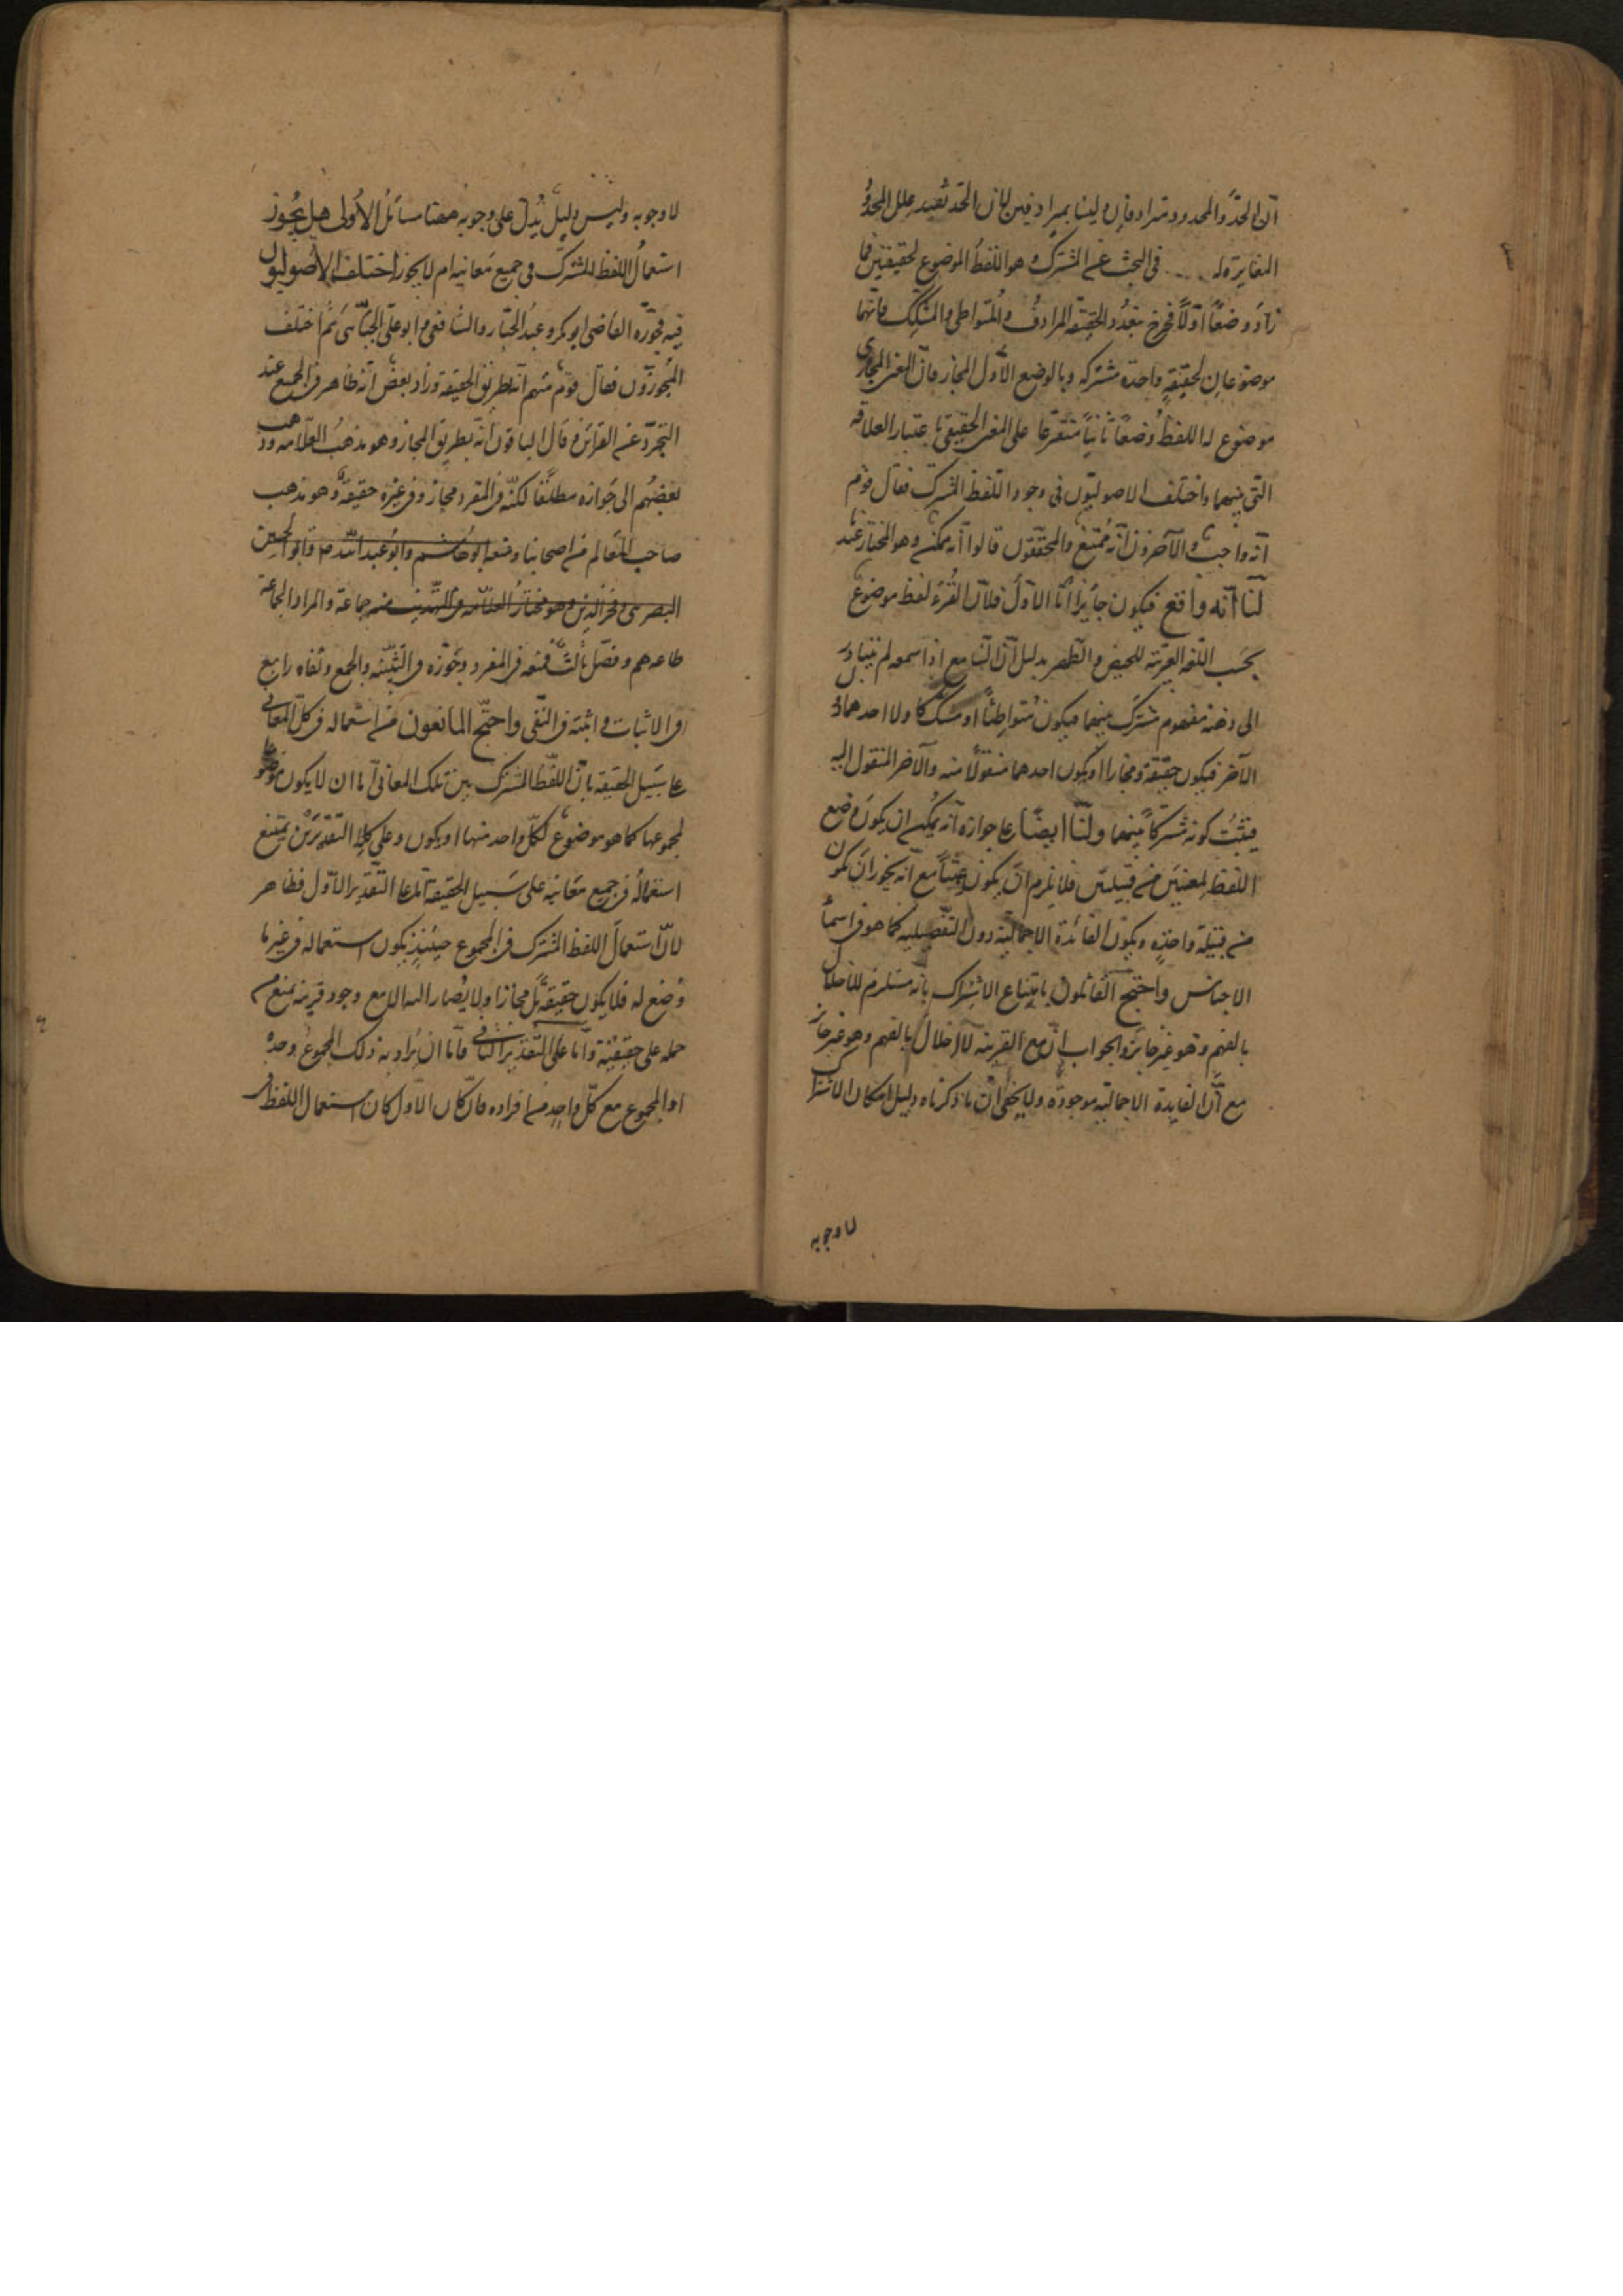 ان الحدّ والمحدود مترادفان وليسا بمترادفين لان الحد تفيد علل المحدود
المغايرة له .... في البحث عن المشترك وهو اللفظ الموضوع لحقيقتين فما
زاد وضعًا اوّلاً فخرج بتعدد الحقيقة المرادف والمتواطي والمشكك فانهما
موضوعان لحقيقة واحدة مشتركة وبالوضع الأول المجاز فانّ المعنى المجازى
موضوع له اللفظ وضعًا ثانيًا متفرعا على المعنى الحقيقي باعتبار العلاقة
التي بينهما واختلف الاصوليّون في وجود اللفظ المشترك فقال قوم
انه واجب والآخرون انّه ممتنع والمحققون قالوا انه ممكن وهو المختار عند
لنا انّه واقع فيكون جايزا امّا الاول فلانّ القرء لفظ موضوع
بحسب اللغة العربيّة للحيض والطّهر بدليل انّ السّامع اذا سمعه لم يتبادر
الى ذهنه مفهوم مشترك بينهما فيكون متواطئًا او مشككا ولا احدهما دون
الآخر فيكون حقيقة ومجازا او يكون احدهما منقولًا منه والآخر المنقول اليه
فيثبت كونه مشتركًا بينهما ولنا ايضًا على جوازه انّه يمكن ان يكون وضع
اللفظ لمعنيين من قبيلتين فلا يلزم ان يكون عبثًا مع انّه يجوز ان يكون
من قبيلة واحدة ويكون الفائدة الاجمالية دون التفصيلية كما هو في اسماء
الاجناس واحتج القائلون بامتناع الاشتراك بانه مستلزم للاخلال
بالفهم وهو غير جائز والجواب انّ مع القرينة لا اخلال بالفهم وهو غير جائز
مع انّ الفايدة الاجماليّة موجودة ولا يخفى انّ ما ذكرناه دليل امكان الاشتراك
لا وجوبه
لا وجوبه وليس دليل يدلّ على وجوبه هنا مسائل الاولى هل يجوز
استعمال اللفظ المشترك في جميع معانيه ام لا يجوز اختلف الاصوليون
فيه فجوّزه القاضى ابو بكر وعبد الجبّار والشافعى وابو على الجبّائى ثم اختلف
المجوّزون فقال قوم منهم انّه بطريق الحقيقة وزاد بعض انّه ظاهر في الجميع عند
التجرّد عن القرائن وقال الباقون انّه بطريق المجاز وهو مذهب العلّامه وذهب
بعضهم الى جوازه مطلقًا لكنّه في المفرد مجاز وفي غيره حقيقة وهو مذهب
صاحب المعالم من اصحابنا ومنعه ابو هاشم وابو عبد اللّه وابو الحسين
البصرى وفخر الدين وهو مختار العلّامه في التهذيب منه جماعة والمراد بالجماعة
ما عدهم وفصّل ثالث فمنعه في المفرد وجوّزه في التثنية والجمع ونفاه رابع
في الاثبات واثبته في النّفى واحتجّ المانعون من استعماله في كل المعانى
على سبيل الحقيقة بانّ اللفظ المشترك بين تلك المعانى امّا ان لا يكون موضوعا
لمجموعها كما هو موضوع لكلّ واحد منها او يكون وعلى كلا التقديرين يمتنع
استعماله في جميع معانيه على سبيل الحقيقة امّا على التّقدير الاوّل فظاهر
لانّ استعمال اللفظ المشترك في المجموع حينئذٍ يكون استعماله في غير ما
وضع له فلا يكون حقيقة بل مجازا ولا يصار اليه الا مع وجود قرينة تمنع من
حمله على حقيقته وامّا على التّقدير الثّانى فامّا ان يراد به ذلك المجموع وحده
او المجموع مع كلّ واحدٍ من افراده فان كان الاوّل كان استعمال اللفظ في